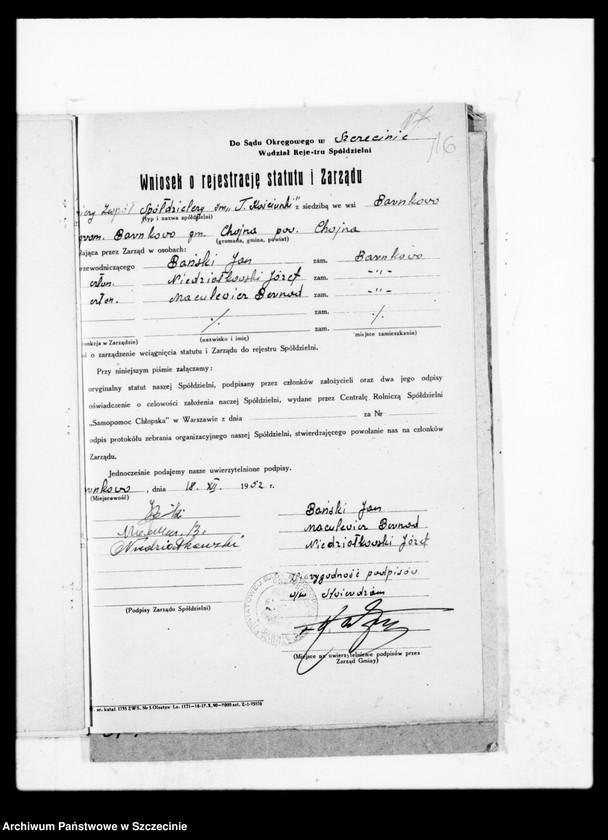 16
Do Sądu Okręgowego w Szczecinie
Wydział Rejestru Spółdzielni
Wniosek o rejestrację statutu i Zarządu
Zespół Spółdzielczy im. „T. Kościuszki" z siedzibą we wsi Barnkowo
(typ i nazwa spółdzielni)
grom. Barnkowo gm. Chojna pow. Chojna
(gromada, gmina, powiat)
łająca przez Zarząd w osobach:
rzewodniczącego Bański Jan zam. Barnkowo
człon. Niedziołkowski Józef zam. -„-
człon. Maculewicz Bernard zam. -„-
·/. zam. ·/.
zam.
unkcja w Zarządzie) (nazwisko i imię) (miejsce zamieszkania)
i o zarządzenie wciągnięcia statutu i Zarządu do rejestru Spółdzielni.
Przy niniejszym piśmie załączamy:
oryginalny statut naszej Spółdzielni, podpisany przez członków założycieli oraz dwa jego odpisy
oświadczenie o celowości założenia naczej Spółdzielni, wydane przez Centralę Rolniczą Spółdzielni
„Samopomoc Chłopska" w Warszawie z dnia za Nr
odpis protokółu zebrania organizacyjnego naszej Spółdzielni, stwierdzającego powołanie nas na członków
Zarządu.
Jednocześnie podajemy nasze uwierzytelnione podpisy.
rnkowo, dnia 18. XII. 1952 r.
(Miejscowość)
Bański Jan
Maculewicz Bernard
Niedziołkowski Józef
Niedziołkowski
Wiarygodność podpisów
stwierdzam
(Podpisy Zarządu Spółdzielni)
(Miejsce na uwierzytelnienie podpisów przez
Zarząd Gminy)
Archiwum Państwowe w Szczecinie